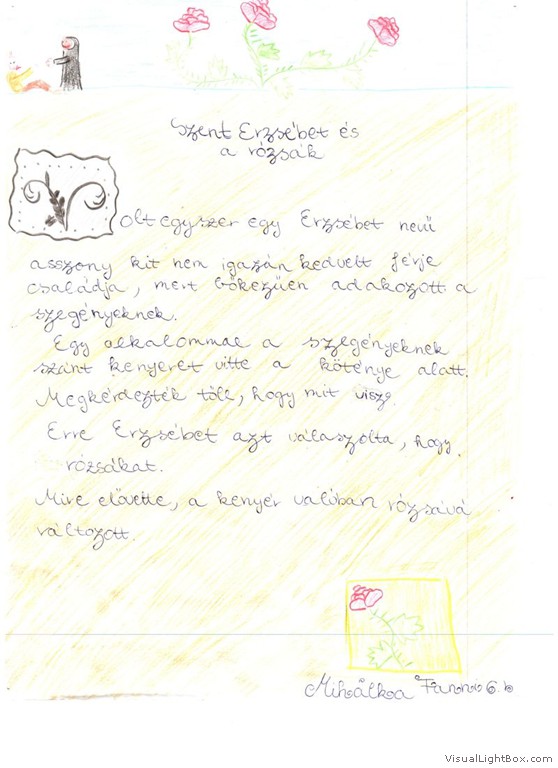 Szent Erzsébet és
a rózsák
Volt egyszer egy Erzsébet nevű
asszony kit nem igazán kedvelt férje
családja, mert bőkezűen adakozott a
szegényeknek.
Egy alkalommal a szegényeknek
szánt kenyeret vitte a köténye alatt.
Megkérdezték tőle, hogy mit visz.
Erre Erzsébet azt válaszolta, hogy
rózsákat.
Mire elővette, a kenyér valóban rózsává
változott.
Mihálka Fanni 6.b
VisualLightBox.com